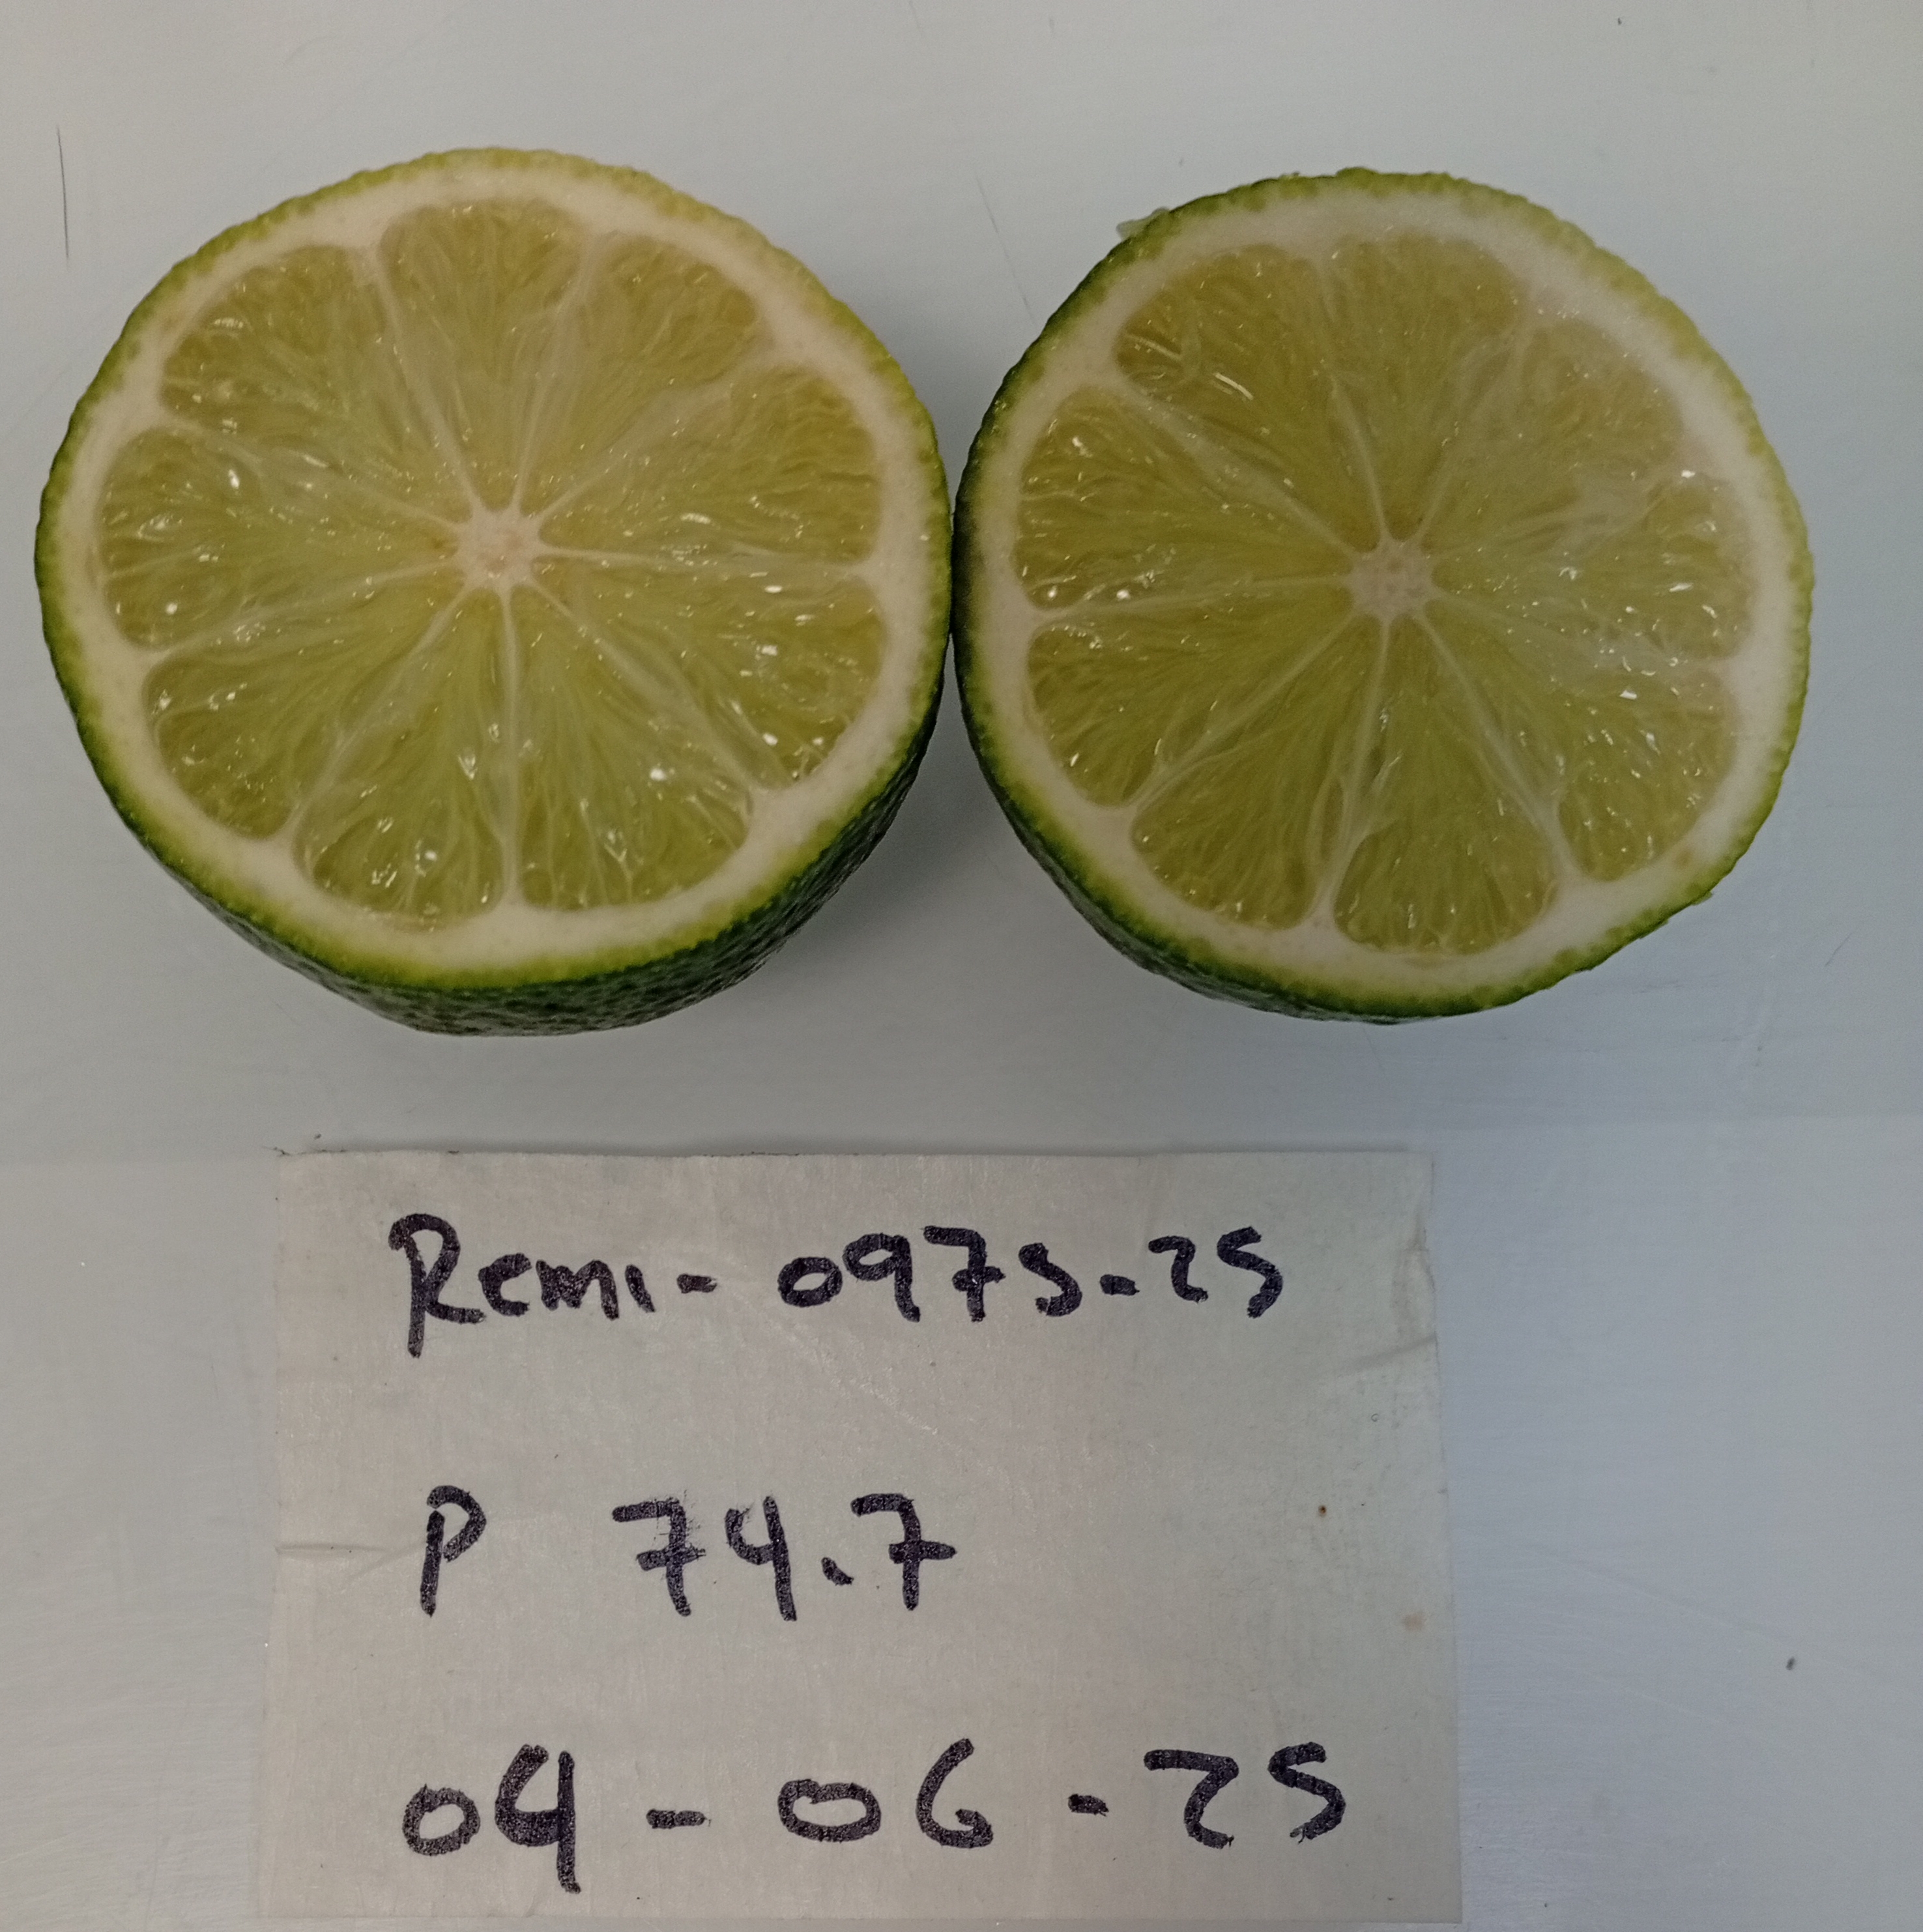 Remi- 0975-25
P 74.7
04-06-25